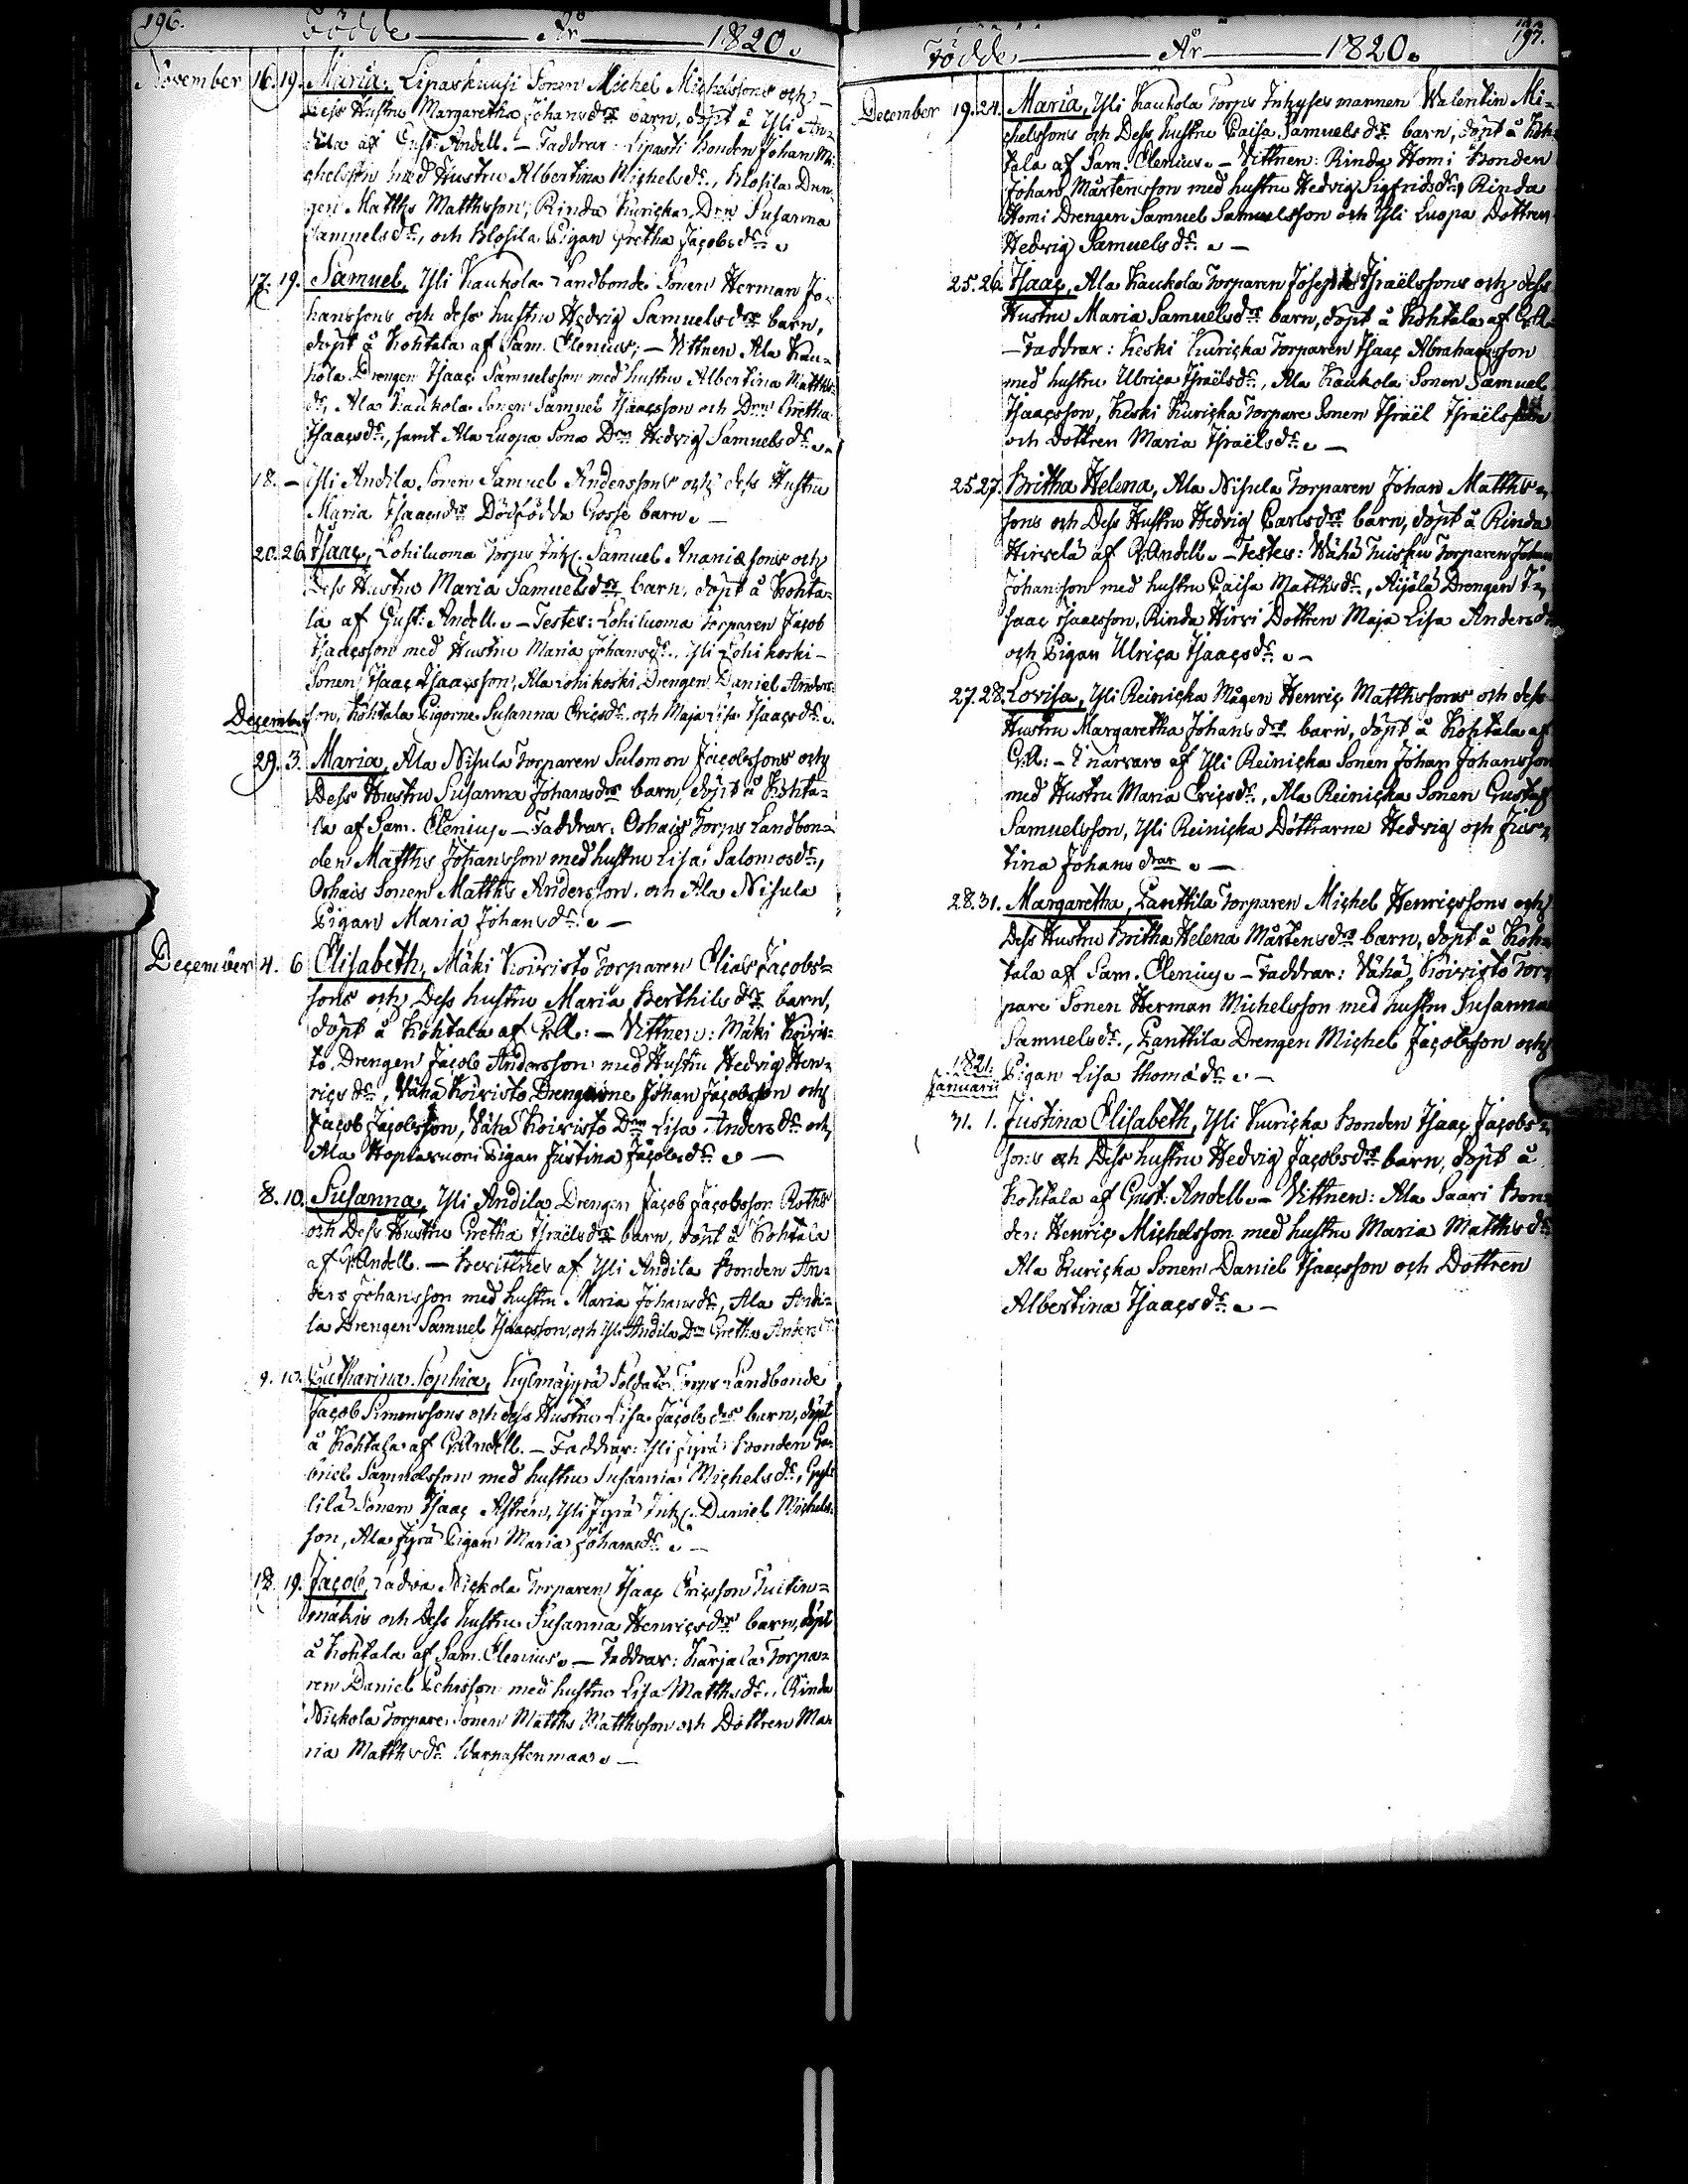 196. Födde År 1820.
November 16. 19. Maria, Lipaskuusi Sonen Michel Michelssons och
Dess Hustru Margaretha Johansdrs barn, döpt å Yli An-
dila af Gust: Andell. – Faddrar: Lipasti Bonden Johan Mi-
chelsson med Hustru Albertina Michelsdr., Blosila Dren-
gen Matths Matthsson, Rinda Kuricka Drn Susanna
Samuelsdr, och Blosila Pigan Gretha Jacobsdr.
17. 19. Samuel, Yli Kaukola Landbonde Sonen Herman Jo-
hanssons och dess hustru Hedvig Samuelsdrs barn,
döpt å Kohtala af Sam. Elenius; – Vittnen Ala Kau-
kola Drengen Isaac Samuelsson med hustru Albertina Matths-
dr, Ala Kaukola Sonen Samuel Isaacsson och Drn Gretha
Isaacsdr, samt Ala Luopa Sona Drn Hedvig Samuelsdr.
18. – Yli Andila Sonen Samuel Anderssons och dess Hustru
Maria Isaacsdrs Dödfödda Gosse barn. –
20. 26. Isaac, Lohiluoma Torps Inh. Samuel Ananiæ sons och
Dess Hustru Maria Samuelsdrs barn, döpt å Kohta-
la af Gust: Andell. – Testes: Lohiluoma Torparen Jacob
Isaacsson med Hustru Maria Johansdr., Yli Lohikoski
Sonen Isaac Isaacsson, Ala Lohikoski Drengen Daniel Anders-
December son, Kohtala Pigorne Susanna Ericsdr. och Maja Lisa Isaacsdr.
29. 3. Maria, Ala Nisula Torparen Salomon Jacobssons och
Dess Hustru Susanna Johansdrs barn, döpt å Kohta-
la af Sam. Elenius. – Faddrar: Oshais Torps Landbon-
den Matths Johansson med hustru Lisa Salomosdr,
Oshais Sonen Matths Andersson och Ala Nisula
Pigan Maria Johansdr. –
December 4. 6 Elisabeth, Mäki Koivisto Torparen Elias Jacobs-
sons och Dess hustru Maria Berthilsdrs barn,
döpt å Kohtala af GAll: – Vittnen: Mäki Koivis-
to Drengen Jacob Andersson med Hustru Hedvig Hen-
ricsdr, Vähä Koivisto Drengarne Johan Jacobsson och
Jacob Jacobsson, Vähä Koivisto Drn Lisa Andersdr och
Ala Hopiavuori Pigan Justina Jacobsdr. –
8. 10. Susanna, Yli Andila Drengen Jacob Jacobsson Roths
och Dess Hustru Gretha Israelsdrs barn, döpt å Kohtala
af GAndell. – Bevittnes af Yli Andila Bonden An-
ders Johansson med hustru Maria Johansdr, Ala Andi-
la Drengen Samuel Isaacsson, och Yli Andila Drn Gretha Andersdr
9. 10. Catharina Sophia, Kylmäjyrä Soldate Torps Landbonde
Jacob Simonssons och dess Hustru Lisa Jacobsdrs barn, döpt
å Kohtala af GAndell. – Faddrar: Yli Jyrä Bonden Ga-
briel Samuelsson med hustru Susanna Michelsdr,
Sonen Isaac Astren, Yli Jyrä Inh. Daniel Michels-
son, Ala Jyrä Pigan Maria Johansdr. –
18. 19. Jacob, Ladva Nickola Torparen Isaac Ericsson Tuitin-
mäkis och Dess hustru Susanna Henricsdrs barn, döpt
å Kohtala af Sam. Elenius. – Faddrar: Karjala Torpa-
ren Daniel Pehrsson med hustru Lisa Matthsdr., Rinda
Nickola Torpare Sonen Matths Matthsson och Dottren Ma-
ria Matthsdr. Warnastenmaa. –
Födde År 1820. 197.
December 19. 24. Maria, Yli Kaukola Torps Inhyses mannen Walentin Mi-
chelssons och Dess hustru Caisa Samuelsdrs barn, döpt å Koh-
tala af Sam. Elenius. – Vittnen: Rinda Homi Bonden
Johan Mårtensson med hustru Hedvig Sigfridsdr, Rinda
Homi Drengen Samuel Samuelsson och Yli Luopa Dottren
Hedvig Samuelsdr. –
25. 26. Isaac, Ala Kaukola Torparen Joseph Israëlssons och dess
Hustru Maria Samuelsdrs barn, döpt å Kohtala af GA.
– Faddrar: Keski Kuricka Torparen Isaac Abrahamsson
med hustru Ulrica Israëlsdr, Ala Kaukola Sonen Samuel
Isaacsson, Keski Kuricka Torpare Sonen Israël Israëlsson
och dottren Maria Israëlsdr. –
25. 27. Britha Helena, Ala Nisula Torparen Johan Matths-
sons och Dess Hustru Hedvig Carlsdrs barn, döpt å Rinda
Hirvelä af GAndell. – Testes: Wähä Tuisku Torparen Johan
Johansson med hustru Caisa Matthsdr., Äijälä Drengen I-
saac Isaacsson, Rinda Hirvi Dottren Maja Lisa Andersdr
och Pigan Ulrica Isaacsdr. –
27. 28. Lovisa, Yli Reinicka Mågen Henric Matthssons och dess
Hustru Margaretha Johansdrs barn, döpt å Kohtala af
GA: – I närvaro af Yli Reinicka Sonen Johan Johansson
med Hustru Maria Ericsdr., Ala Reinicka Sonen Gustaf
Samuelsson, Yli Reinicka Döttrarne Hedvig och Jus-
tina Johansdrar. –
28. 31. Margaretha, Panttila Torparen Michel Henricssons och
Dess Hustru Britha Helena Mårtensdrs barn, döpt å Koh-
tala af Sam. Elenius. – Faddrar: Vähä Koivisto Tor-
pare Sonen Herman Michelsson med hustru Susanna
Samuelsdr., Panttila Drengen Michel Jacobsson och
1821. Pigan Lisa Thomædr. –
Januarii
31. 1. Justina Elisabeth, Yli Kuricka Bonden Isaac Jacobs-
sons och Dess hustru Hedvig Jacobsdrs barn, döpt å
Kohtala af Gust: Andell. – Vittnen: Ala Saari Bon-
den Henric Michelsson med hustru Maria Matthsdr
Ala Kuricka Sonen Daniel Isaacsson och Dottren
Albertina Isaacsdr. –